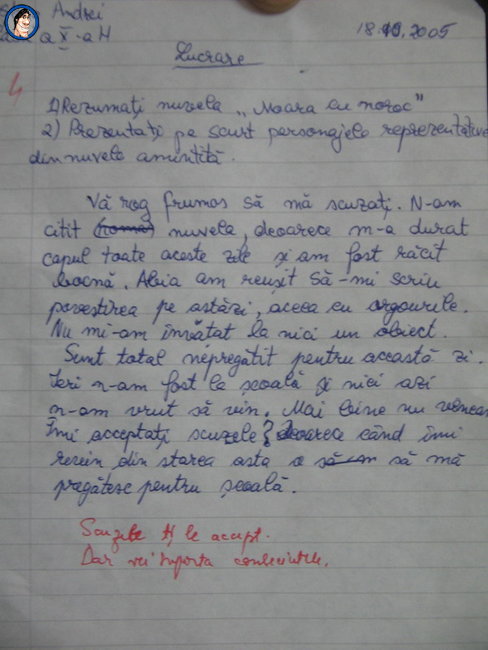 Andrei
a X-a H
18.10.2005
Lucrare
4
1) Rezumați nuvela „Moara cu noroc"
2) Prezentați pe scurt personajele reprezentative
din nuvela amintită.
Vă rog frumos să mă scuzați. N-am
citit (roma) nuvela, deoarece m-a durat
capul toate aceste zile și am fost răcit
bocnă. Abia am reușit să-mi scriu
povestirea pe astăzi, aceea cu argourile.
Nu mi-am învățat la nici un obiect.
Sunt total nepregătit pentru această zi.
Ieri n-am fost la școală și nici azi
n-am vrut să vin. Mai bine nu veneam
Îmi acceptați scuzele? deoarea când îmi
revin din starea asta o să să mă
pregătesc pentru școală.
Scuzele ți le accept.
Dar vei suporta consecințele.